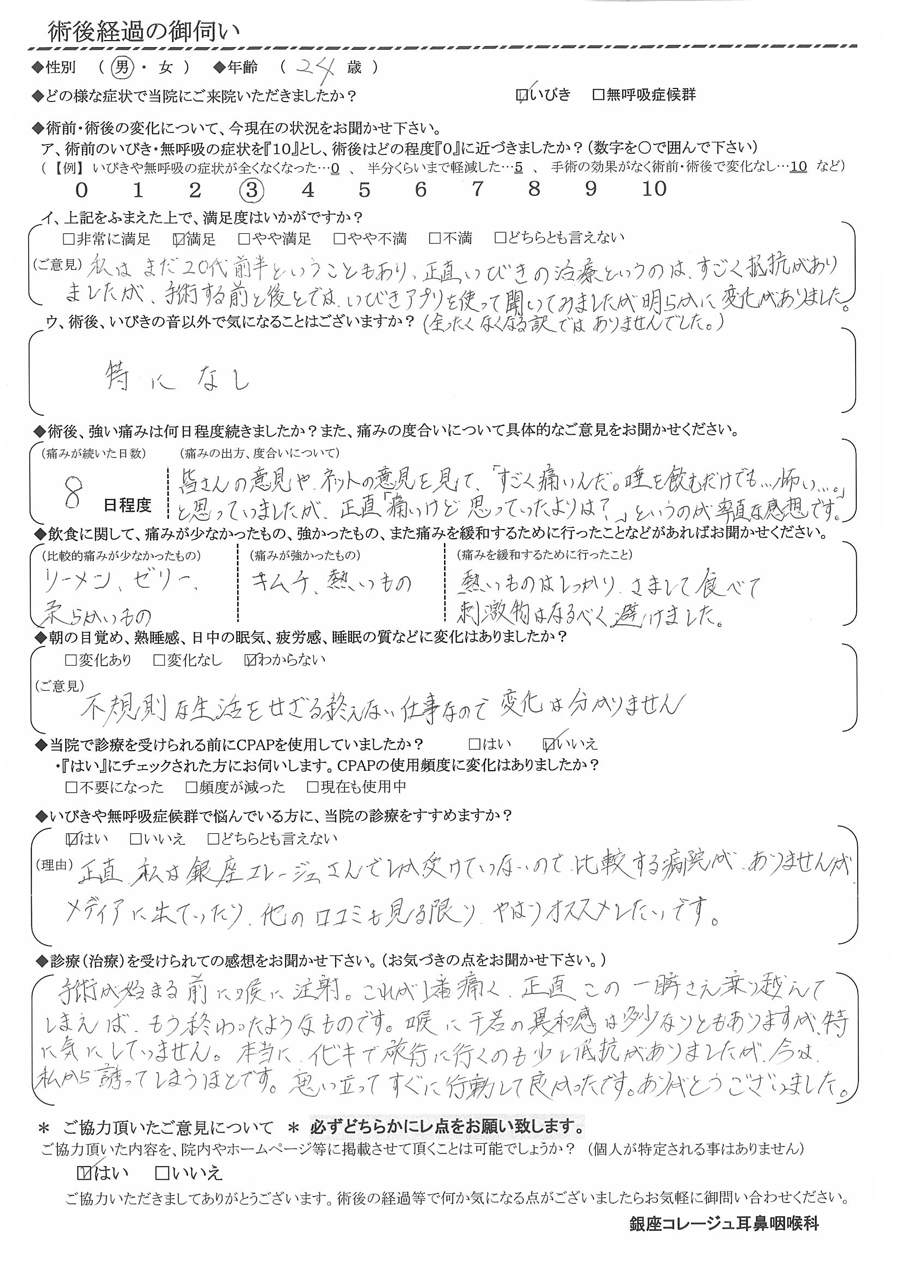 術後経過の御伺い
◆性別　（ 男 ・ 女 ）　◆年齢　（ 24 歳 ）
◆どの様な症状で当院にご来院いただきましたか？　☑いびき　□無呼吸症候群
◆術前・術後の変化について、今現在の状況をお聞かせ下さい。
ア、術前のいびき・無呼吸の症状を『10』とし、術後はどの程度『0』に近づきましたか？（数字を○で囲んで下さい）
（【例】いびきや無呼吸の症状が全くなくなった…0 、 半分くらいまで軽減した…5 、 手術の効果がなく術前・術後で変化なし…10 など）
0 1 2 ③ 4 5 6 7 8 9 10
イ、上記をふまえた上で、満足度はいかがですか？
□非常に満足　☑満足　□やや満足　□やや不満　□不満　□どちらとも言えない
（ご意見）私はまだ20代前半ということもあり、正直いびきの治療というのは、すごく抵抗があり
ましたが、手術する前と後とでは、いびきアプリを使って聞いてみましたが明らかに変化がありました。
ウ、術後、いびきの音以外で気になることはございますか？（全ったくなくなる訳ではありませんでした。）
特になし
◆術後、強い痛みは何日程度続きましたか？また、痛みの度合いについて具体的なご意見をお聞かせください。
（痛みが続いた日数）　（痛みの出方、度合いについて）
8 日程度　皆さんの意見や、ネットの意見を見て、「すごく痛いんだ。唾を飲むだけでも…怖い…。」
と思っていましたが、正直「痛いけど思っていたよりは？」というのが率直な感想です。
◆飲食に関して、痛みが少なかったもの、強かったもの、また痛みを緩和するために行ったことなどがあればお聞かせください。
（比較的痛みが少なかったもの）　（痛みが強かったもの）　（痛みを緩和するために行ったこと）
ソーメン、ゼリー、　キムチ、熱いもの　熱いものはしっかり、さまして食べて
柔らかいもの　刺激物はなるべく避けました。
◆朝の目覚め、熟睡感、日中の眠気、疲労感、睡眠の質などに変化はありましたか？
□変化あり　□変化なし　☑わからない
（ご意見）
不規則な生活をせざる終えない仕事なので変化は分かりません
◆当院で診療を受けられる前にCPAPを使用していましたか？　□はい　☑いいえ
・『はい』にチェックされた方にお伺いします。CPAPの使用頻度に変化はありましたか？
□不要になった　□頻度が減った　□現在も使用中
◆いびきや無呼吸症候群で悩んでいる方に、当院の診療をすすめますか？
☑はい　□いいえ　□どちらとも言えない
（理由）正直、私は銀座コレージュさんでしか受けていないので、比較する病院が、ありませんが、
メディアに出ていたり、他の口コミも見る限り、やはりオススメしたいです。
◆診療（治療）を受けられての感想をお聞かせ下さい。（お気づきの点をお聞かせ下さい。）
手術が始まる前に喉に注射。これが1番痛く、正直この一瞬さえ乗り越えて
しまえば、もう終わったようなものです。喉に若干の異和感は多少なりともありますが、特
に気にしていません。本当に、イビキで旅行に行くのも少し抵抗がありましたが、今は、
私から誘ってしまうほどです。思い立ってすぐに行動して良かったです。ありがとうございました。
＊ ご協力頂いたご意見について ＊ 必ずどちらかにレ点をお願い致します。
ご協力頂いた内容を、院内やホームページ等に掲載させて頂くことは可能でしょうか？（個人が特定される事はありません）
☑はい　□いいえ
ご協力いただきましてありがとうございます。術後の経過等で何か気になる点がございましたらお気軽に御問い合わせください。
銀座コレージュ耳鼻咽喉科